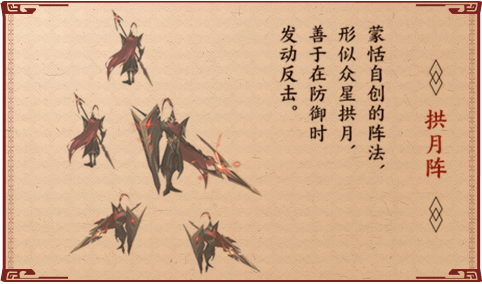 拱月阵
蒙恬自创的阵法，
形似众星拱月，
善于在防御时
发动反击。